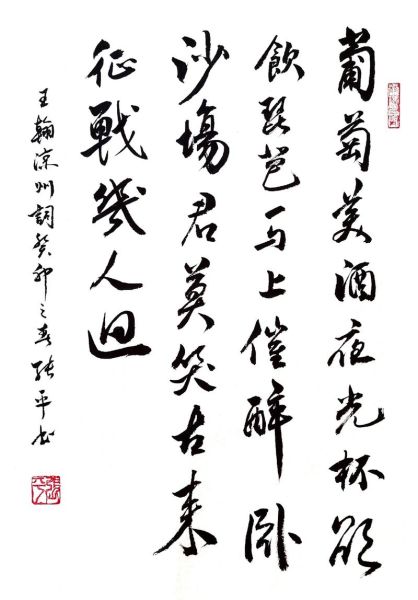 葡萄美酒夜光杯欲
飲琵琶马上催醉卧
沙場君莫笑古来
征戰幾人迴
王翰凉州詞癸卯之春張平书